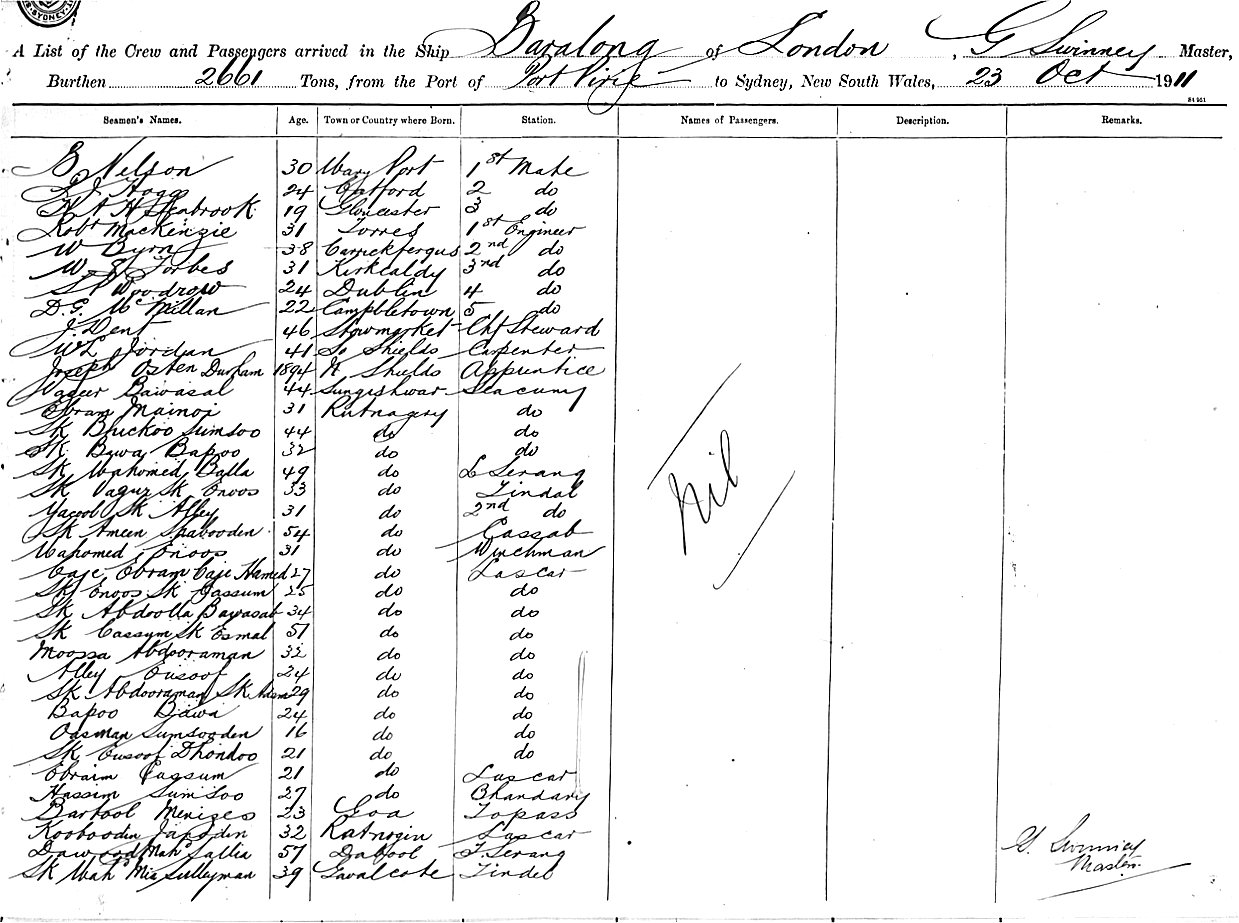 SYDNEY
A List of the Crew and Passengers arrived in the Ship Baralong of London, G Swinney Master,
Burthen 2661 Tons, from the Port of Port Pirie to Sydney, New South Wales, 23 Oct 1911
Seamen's Names. Age. Town or Country where Born. Station. Names of Passengers. Description. Remarks.
B Nelson 30 Mary Port 1st Mate
Hoggs 24 Catford 2 do
H A H Seabrook 19 Gloucester 3 do
Robt MacKenzie 31 Torres 1st Engineer
W Byrn 38 Carrickfergus 2nd do
W Forbes 31 Kirkcaldy 3rd do
Woodrow 24 Dublin 4 do
D.G. McMillan 22 Campbletown 5 do
J. Dent 46 Stowmarket Chf Steward
WL Jordan 41 So Shields Carpenter
Joseph Osten Durham 1894 N Shields Apprentice
Wazeer Bawasal 44 Sungishwar Seacunny
Ebram Mainoi 31 Rutnagery do
Sk Buckoo Sumsoo 44 do do
Sk Bawa Bapoo 32 do do
Sk Mahomed Balla 49 do Serang
Sk Sk Enoos 33 do Tindal
Yacool Sk Alley 31 do 2nd do
Sk Ameen Shabooden 54 do Cassab
Mahomed Enoos 31 do Winchman
Caje Ebram Caje Hamed 27 do Lascar
Sk Enoos Sk Cassum 25 do do
Sk Abdoolla Bawasab 34 do do
Sk Cassum Sk Esmal 51 do do
Moossa Abdooraman 32 do do
Alley Eusoof 24 do do
Sk Abdooraman Sk Adam 29 do do
Bapoo Bawa 24 do do
Oosman Sumsooden 16 do do
Sk Eusoof Dhondoo 21 do do
Ebraim Cassum 21 do Lascar
Hassim Sumsoo 27 do Bhandary
Barbool Menizes 23 Goa Topass
Koobooden Japoden 32 Ratnogin Lascar
Dawood Mahd Sallia 57 Dabool F. Serang
Sk Mahd Mia Sulleyman 39 Gavalcote Tindel
Nil
G. Swinney
Master